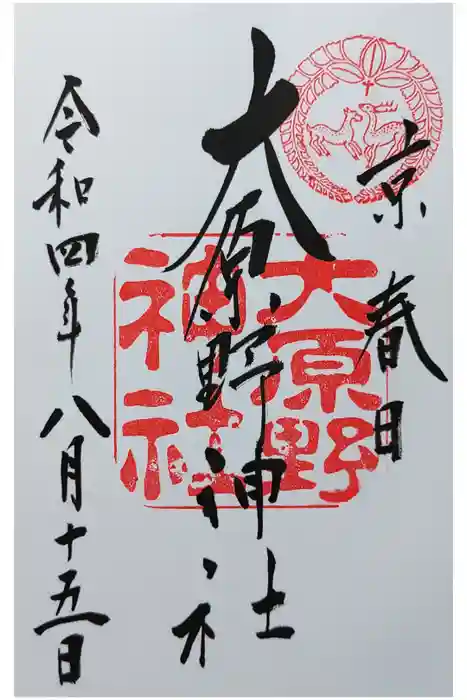 京春日
大原野神社
大原野
神社
令和四年八月十五日